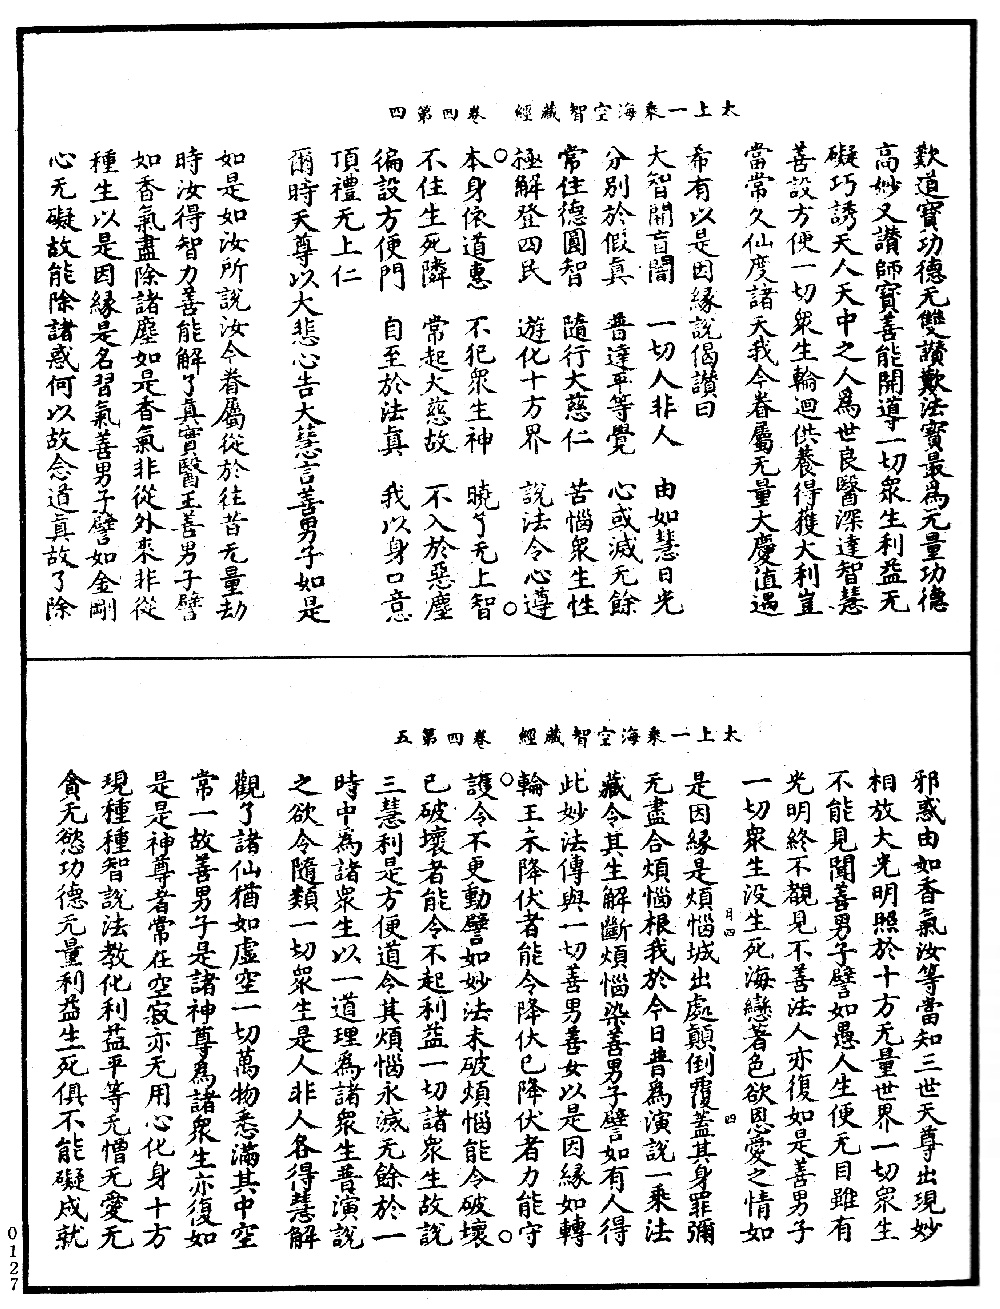 太上一乘海空智藏經 卷四第四
歎道寶功德无雙讚歎法寶最爲无量功德
高妙又讃師寳善能開導一切衆生利益无
礙巧誘天人天中之人爲世良醫深達智慧
善設方便一切衆生輪迴供養得獲大利豈
當常久仙度諸天我今眷屬无量大慶值遇
希有以是因緣說偈讚曰
大智開盲闇 一切人非人 由如慧日光
分別於假真 普達平等覺 心或滅无餘
常住德圓智 隨行大慈仁 苦惱衆生性
極解登四民 遊化十方界 說法令心遵
本身俢道惠 不犯衆生神 曉了无上智
不住生死隣 常起大慈故 不入於惡塵
徧設方便門 自至於法真 我以身口意
頂禮无上仁
爾時天尊以大悲心告大慧言善男子如是
如是如汝所說汝今眷屬從於往昔无量劫
時汝得智力善能解了真實醫王善男子譬
如香氣盡除諸塵如是香氣非從外來非從
種生以是因緣是名習氣善男子譬如金剛
心无礙故能除諸惑何以故念道真故了除
太上一乘海空智藏經 卷四第五
邪惑由如香氣汝等當知三世天尊出現妙
相放大光明照於十方无量世界一切衆生
不能見聞善男子譬如愚人生便无目雖有
光明終不覩見不善法人亦復如是善男子
一切衆生没生死海戀著色欲恩愛之情如
是因緣是煩惱城出處顛倒覆蓋其身罪彌
月四 四
无盡合煩惱根我於今日普爲演說一乘法
藏令其生解斷煩惱染善男子譬如有人得
此妙法傳與一切善男善女以是因緣如轉
輪王未降伏者能令降伏已降伏者力能守
護令不更動譬如妙法未破煩惱能令破壞
已破壞者能令不起利益一切諸衆生故說
三慧利是方便道令其煩惱永滅无餘於一
時中爲諸衆生以一道理爲諸衆生普演說
之欲令隨類一切衆生是人非人各得慧解
觀了諸仙猶如虛空一切萬物悉滿其中空
常一故善男子是諸神尊爲諸衆生亦復如
是是神尊者常在空寂亦无用心化身十方
現種種智說法教化利益平等无憎无愛无
貪无慾功德无量利益生死俱不能礙成就
0127